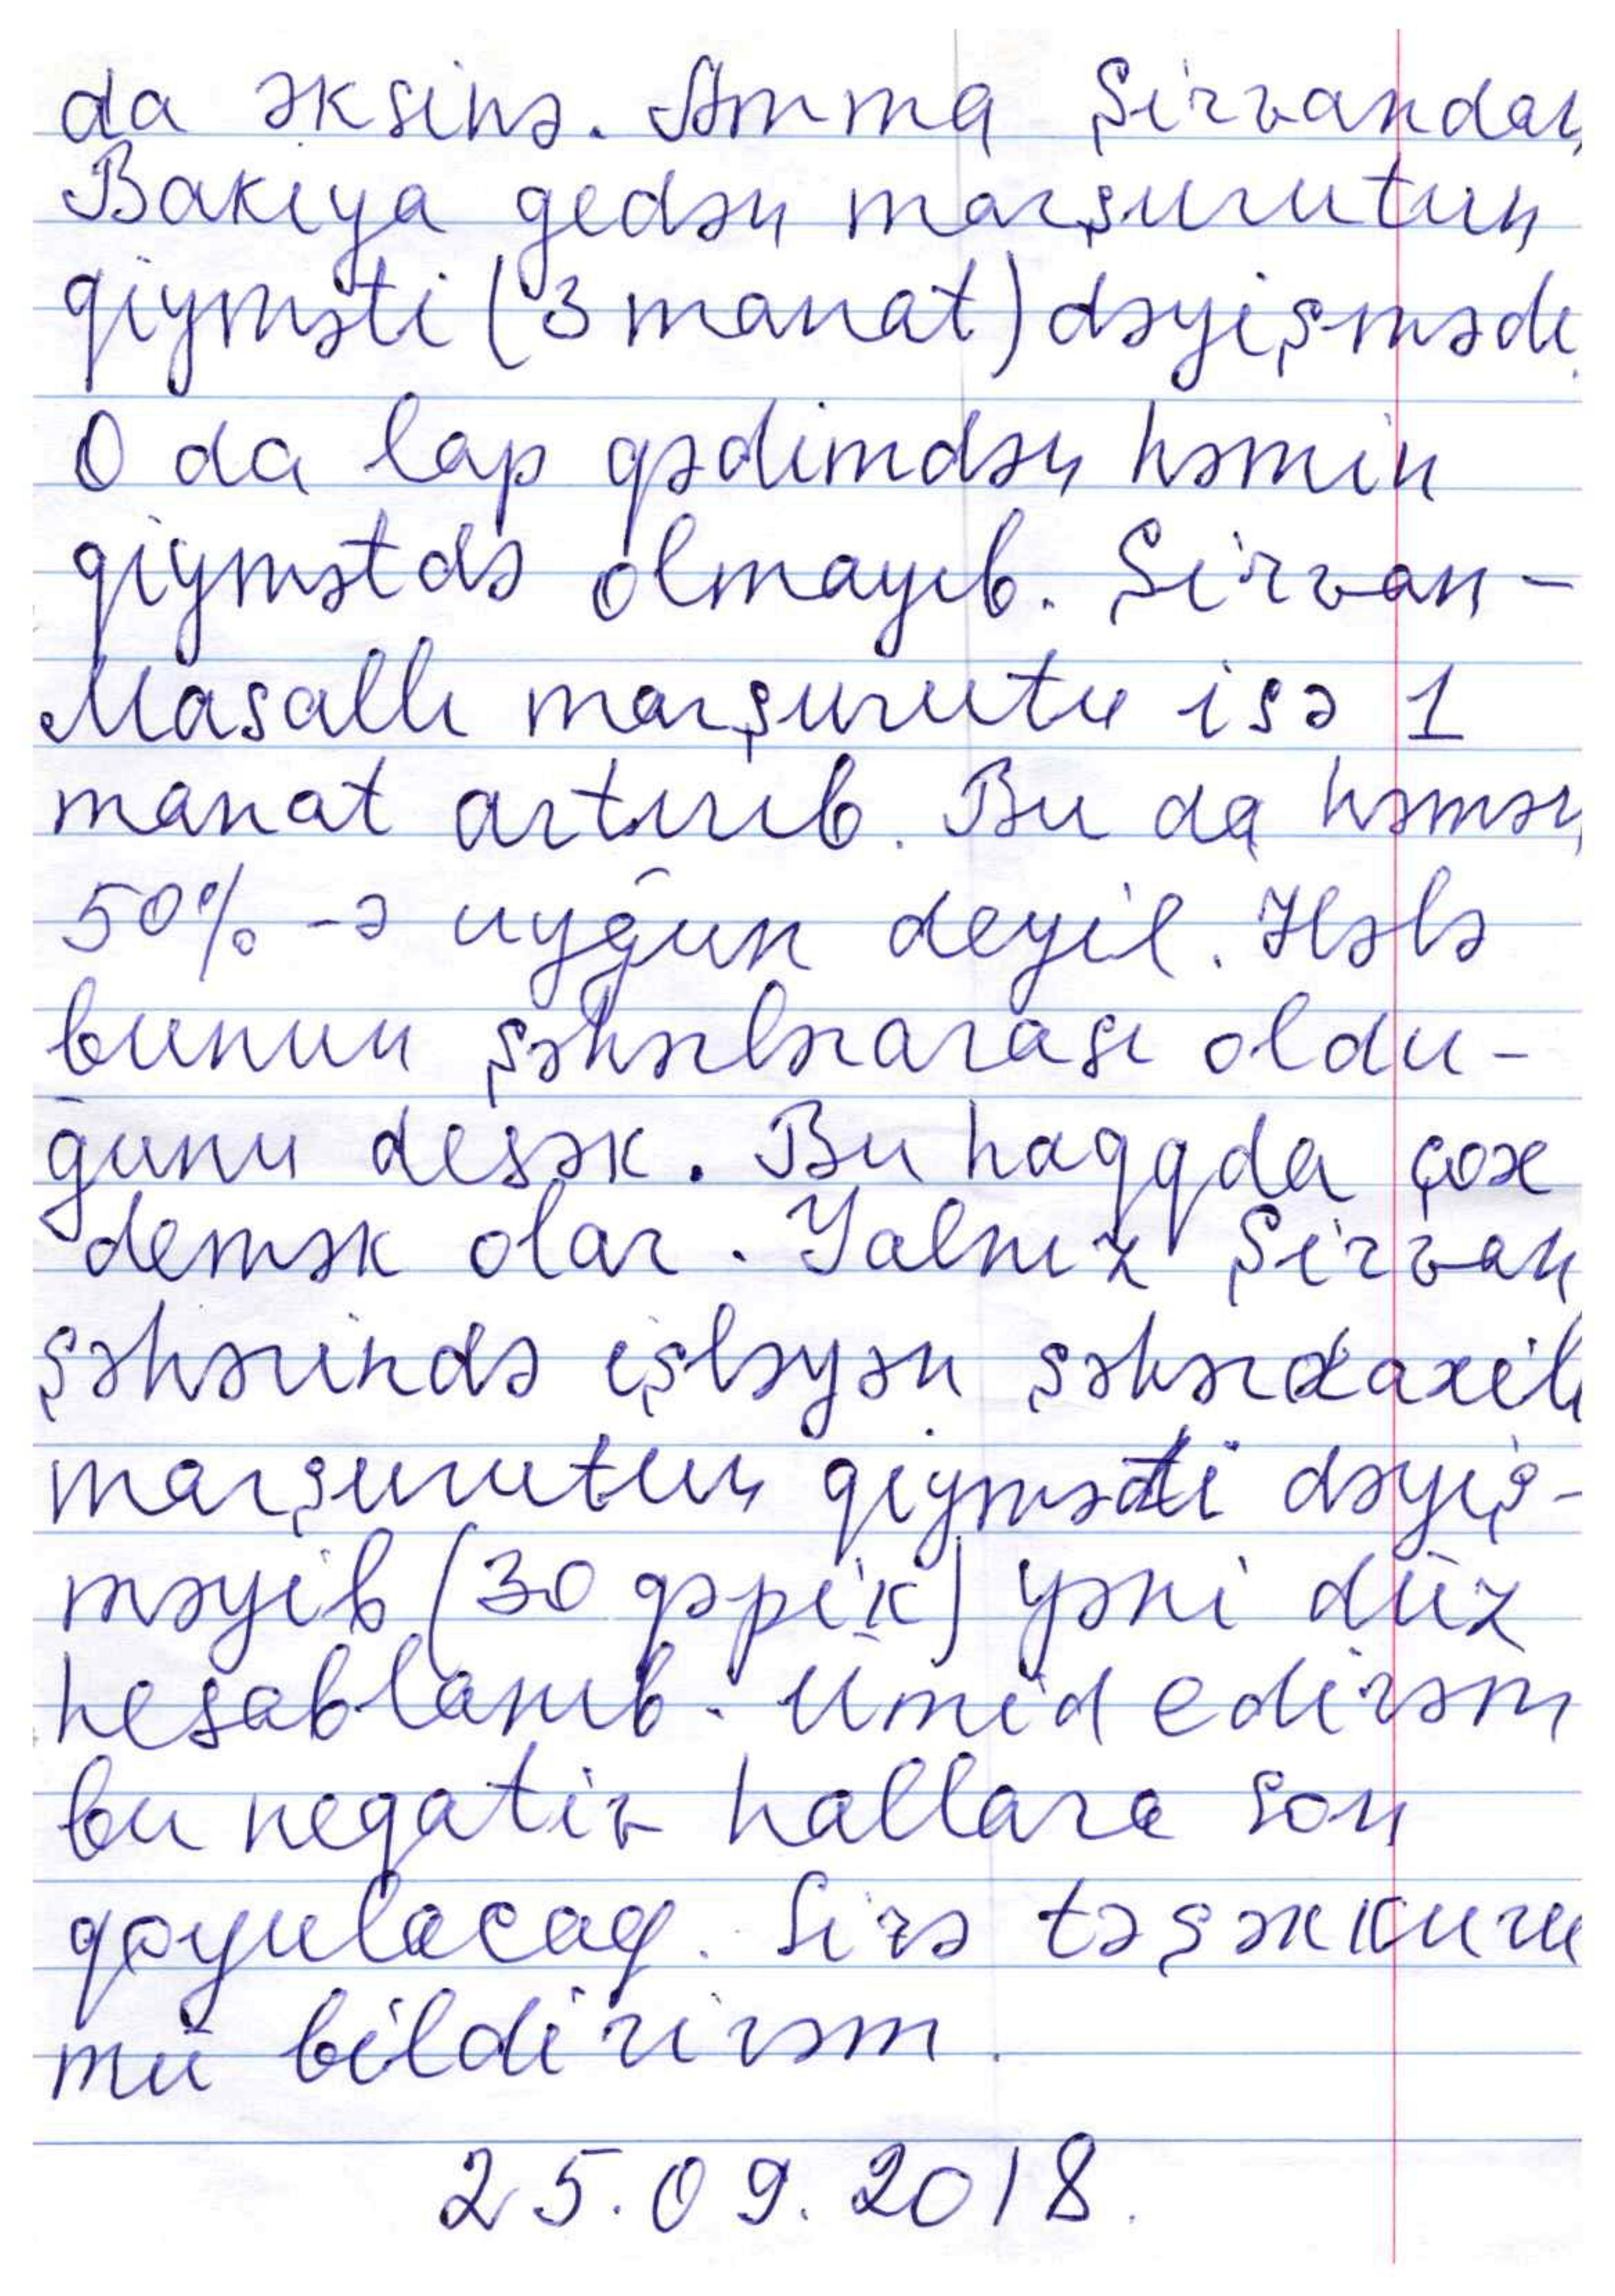 da əksinə. Amma Şirvandan
Bakıya gedən marşurutun
qiyməti (3 manat) dəyişmədi.
O da lap qədimdən həmin
qiymətdə olmayıb. Şirvan-
Masallı marşurutu isə 1
manat artırıb. Bu da həmən
50% -ə uyğun deyil. Hələ
bunun şəhərlərarası oldu-
ğunu desək. Bu haqqda çox
demək olar. Yalnız Şirvan
şəhərində işləyən şəhərdaxili
marşurutun qiyməti dəyiş-
məyib (30 qəpik) yəni düz
hesablanıb. Ümid edirəm
bu neqativ hallara son
qoyulacaq. Sizə təşəkkuru
mü bildirirəm.
25.09.2018.